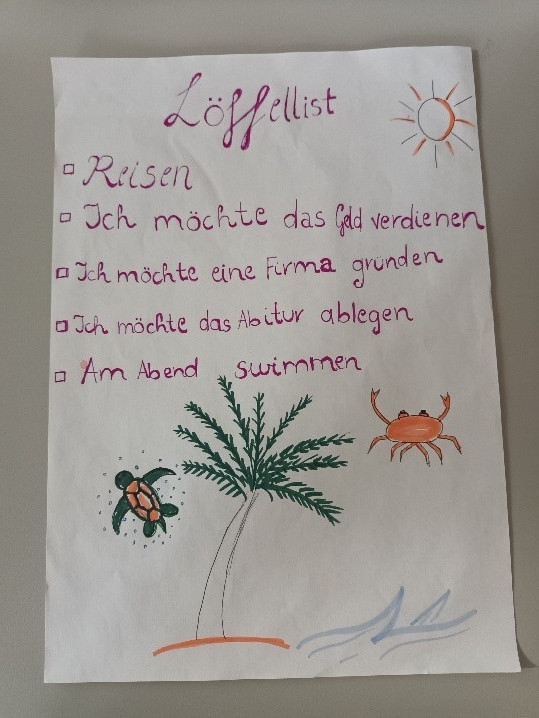 Löffellist
Reisen
Ich möchte das Geld verdienen
Ich möchte eine Firma gründen
Ich möchte das Abitur ablegen
Am Abend swimmen